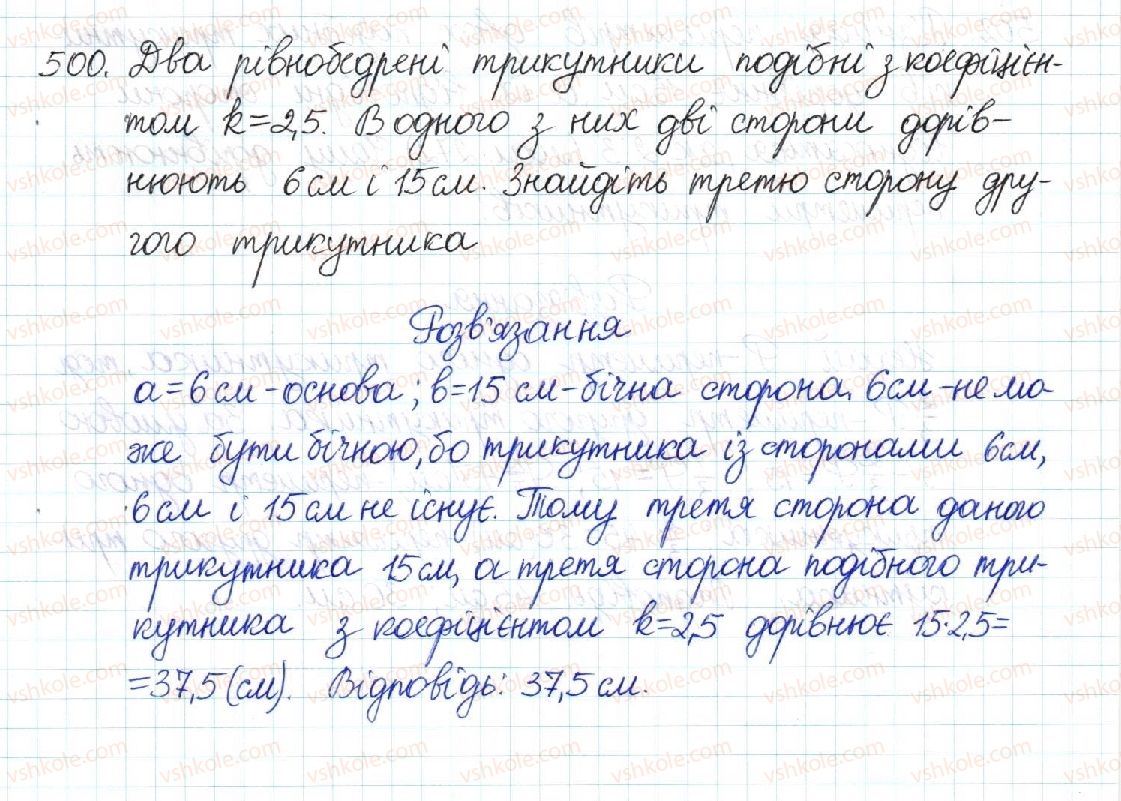 500. Два рівнобедрені трикутники подібні з коефіцієн-
том k=2,5. В одного з них дві сторони дорів-
нюють 6 см і 15 см. Знайдіть третю сторону дру-
гого трикутника
Розв'язання
a=6 см - основа; b=15 см - бічна сторона. 6 см - не мо-
же бути бічною, бо трикутника із сторонами 6 см,
6 см і 15 см не існує. Тому третя сторона даного
трикутника 15 см, а третя сторона подібного три-
кутника з коефіцієнтом k=2,5 дорівнює 15·2,5=
=37,5 (см). Відповідь: 37,5 см.